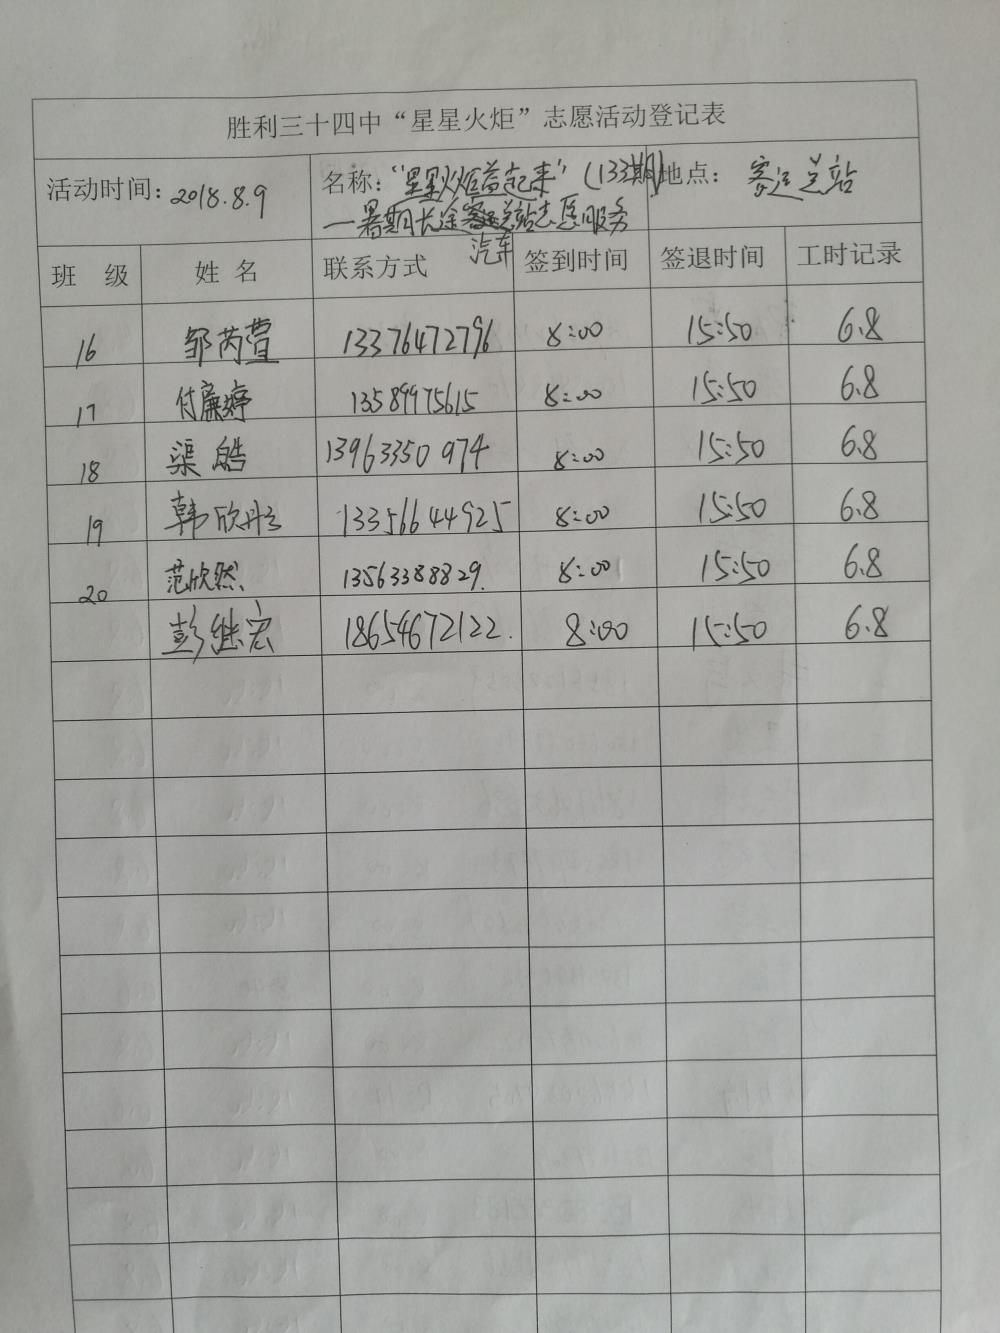 胜利三十四中“星星火炬”志愿活动登记表
活动时间：2018.8.9 名称：“星星火炬益起来”（133期） 地点：客运总站
—暑期长途汽车客运总站志愿服务
班级 姓名 联系方式 签到时间 签退时间 工时记录
16 邹芮萱 13376472796 8:00 15:50 6.8
17 付廉婷 13589975615 8:00 15:50 6.8
18 渠皓 13963350974 8:00 15:50 6.8
19 韩欣彤 13356644925 8:00 15:50 6.8
20 范欣然 13563388829. 8:00 15:50 6.8
彭继宏 18654672122. 8:00 15:50 6.8